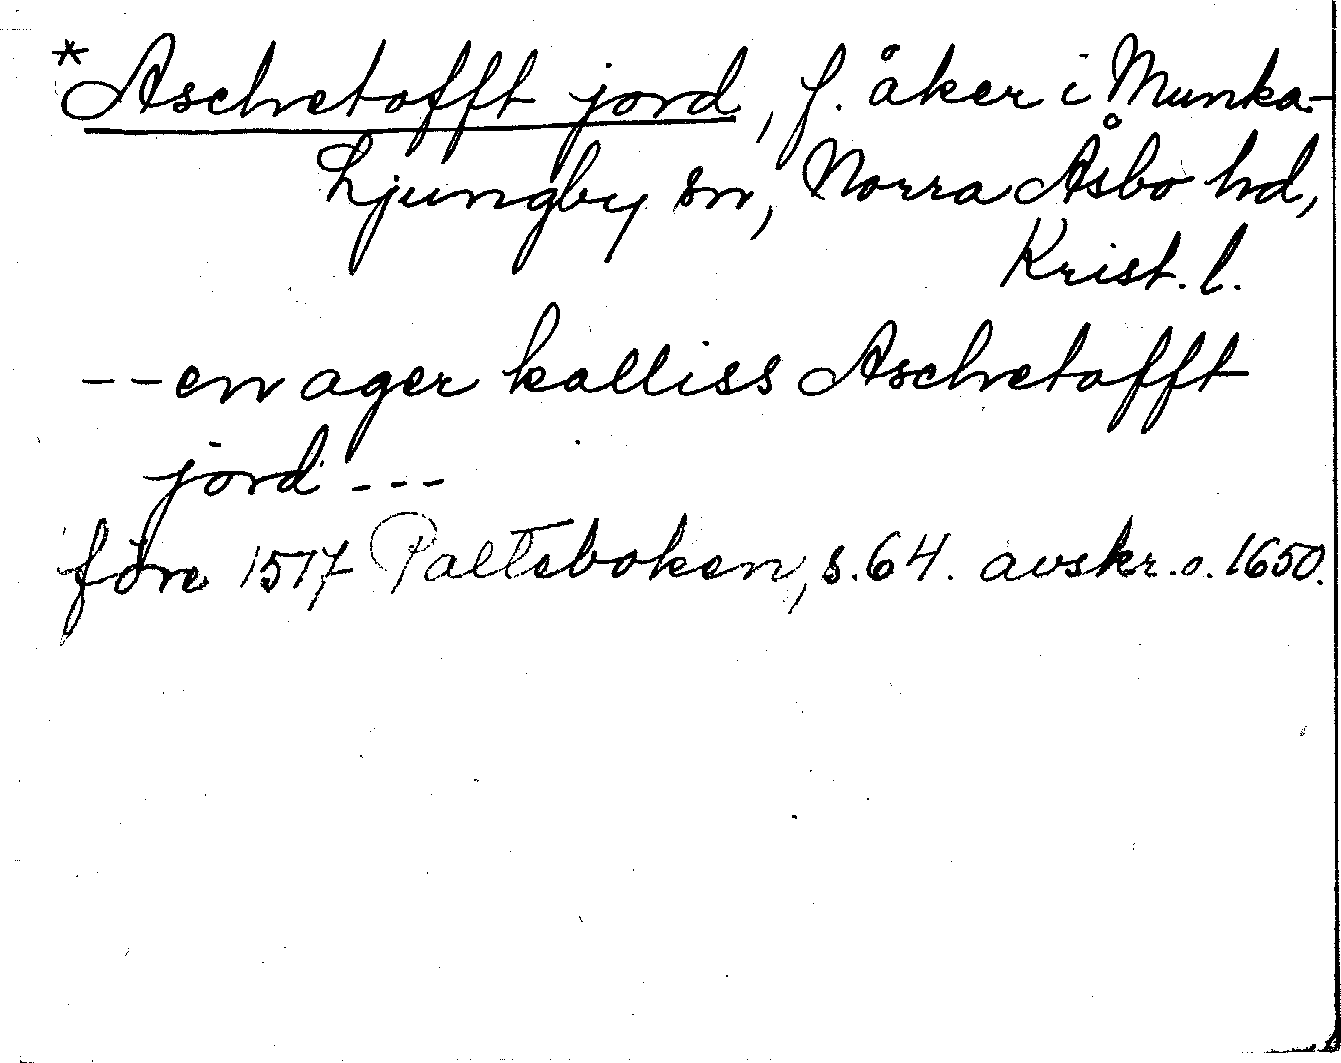 *Aschetofft jord, f. åker i Munka-
Ljungby sn, Norra Åsbo hd,
Krist. l.
-- en ager kalliss Aschetofft
jord ---
före 1517 Palteboken, s. 64. avskr. o. 1650.